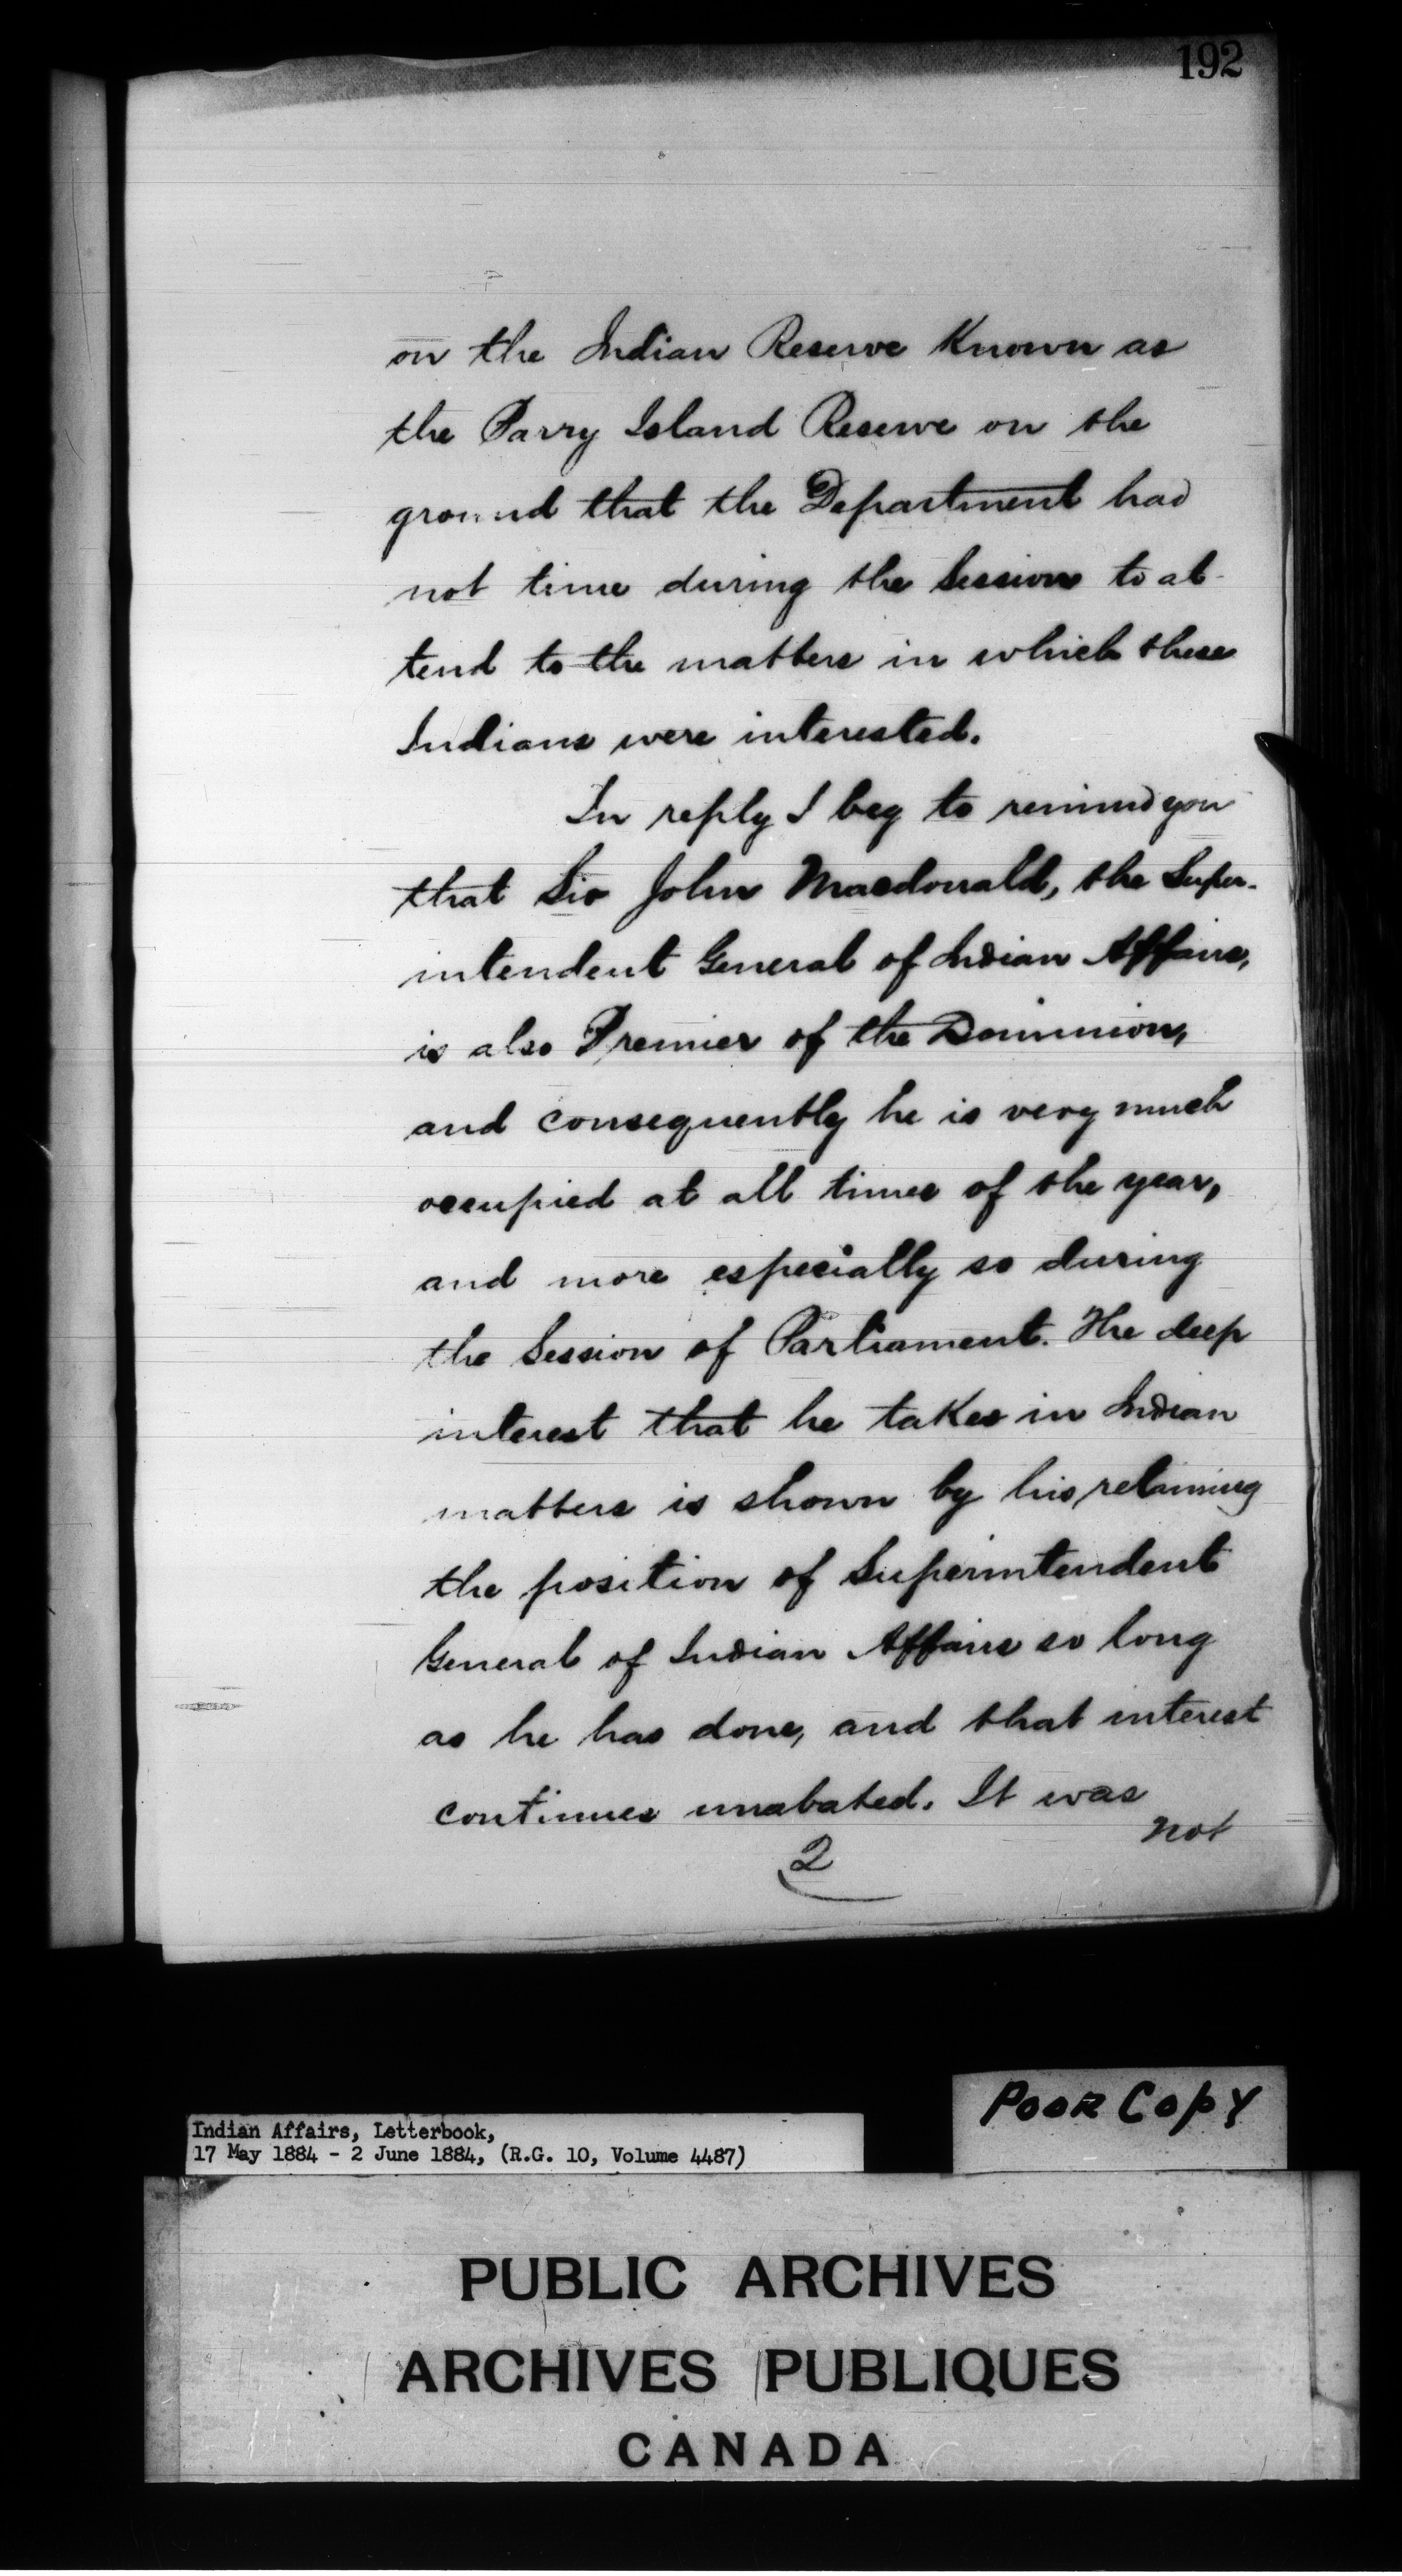 192
on the Indian Reserve Known as
the Parry Island Reserve on the
ground that the Department had
not time during the Session to at-
tend to the matters in which these
Indians were interested.
In reply I beg to remind you
that Sir John Macdonald, the Super-
intendent General of Indian Affairs,
is also Premier of the Dominion,
and consequently he is very much
occupied at all times of the year,
and more especially so during
the Session of Parliament. The deep
interest that he takes in Indian
matters is shown by his retaining
the position of Superintendent
General of Indian Affairs so long
as he has done, and that interest
continues unabated. It was
not
2
Poor Copy
Indian Affairs, Letterbook,
17 May 1884 - 2 June 1884, (R.G. 10, Volume 4487)
PUBLIC ARCHIVES
ARCHIVES PUBLIQUES
CANADA